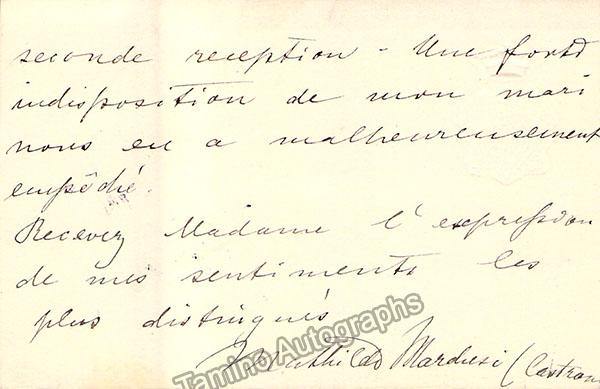 seconde reception - Une forte
indisposition de mon mari
nous en a malheureusement
empêché.
Recevez Madame l'expression
de mes sentiments les
plus distingués
Mathilde Marchesi (Castrone
Tamino Autographs